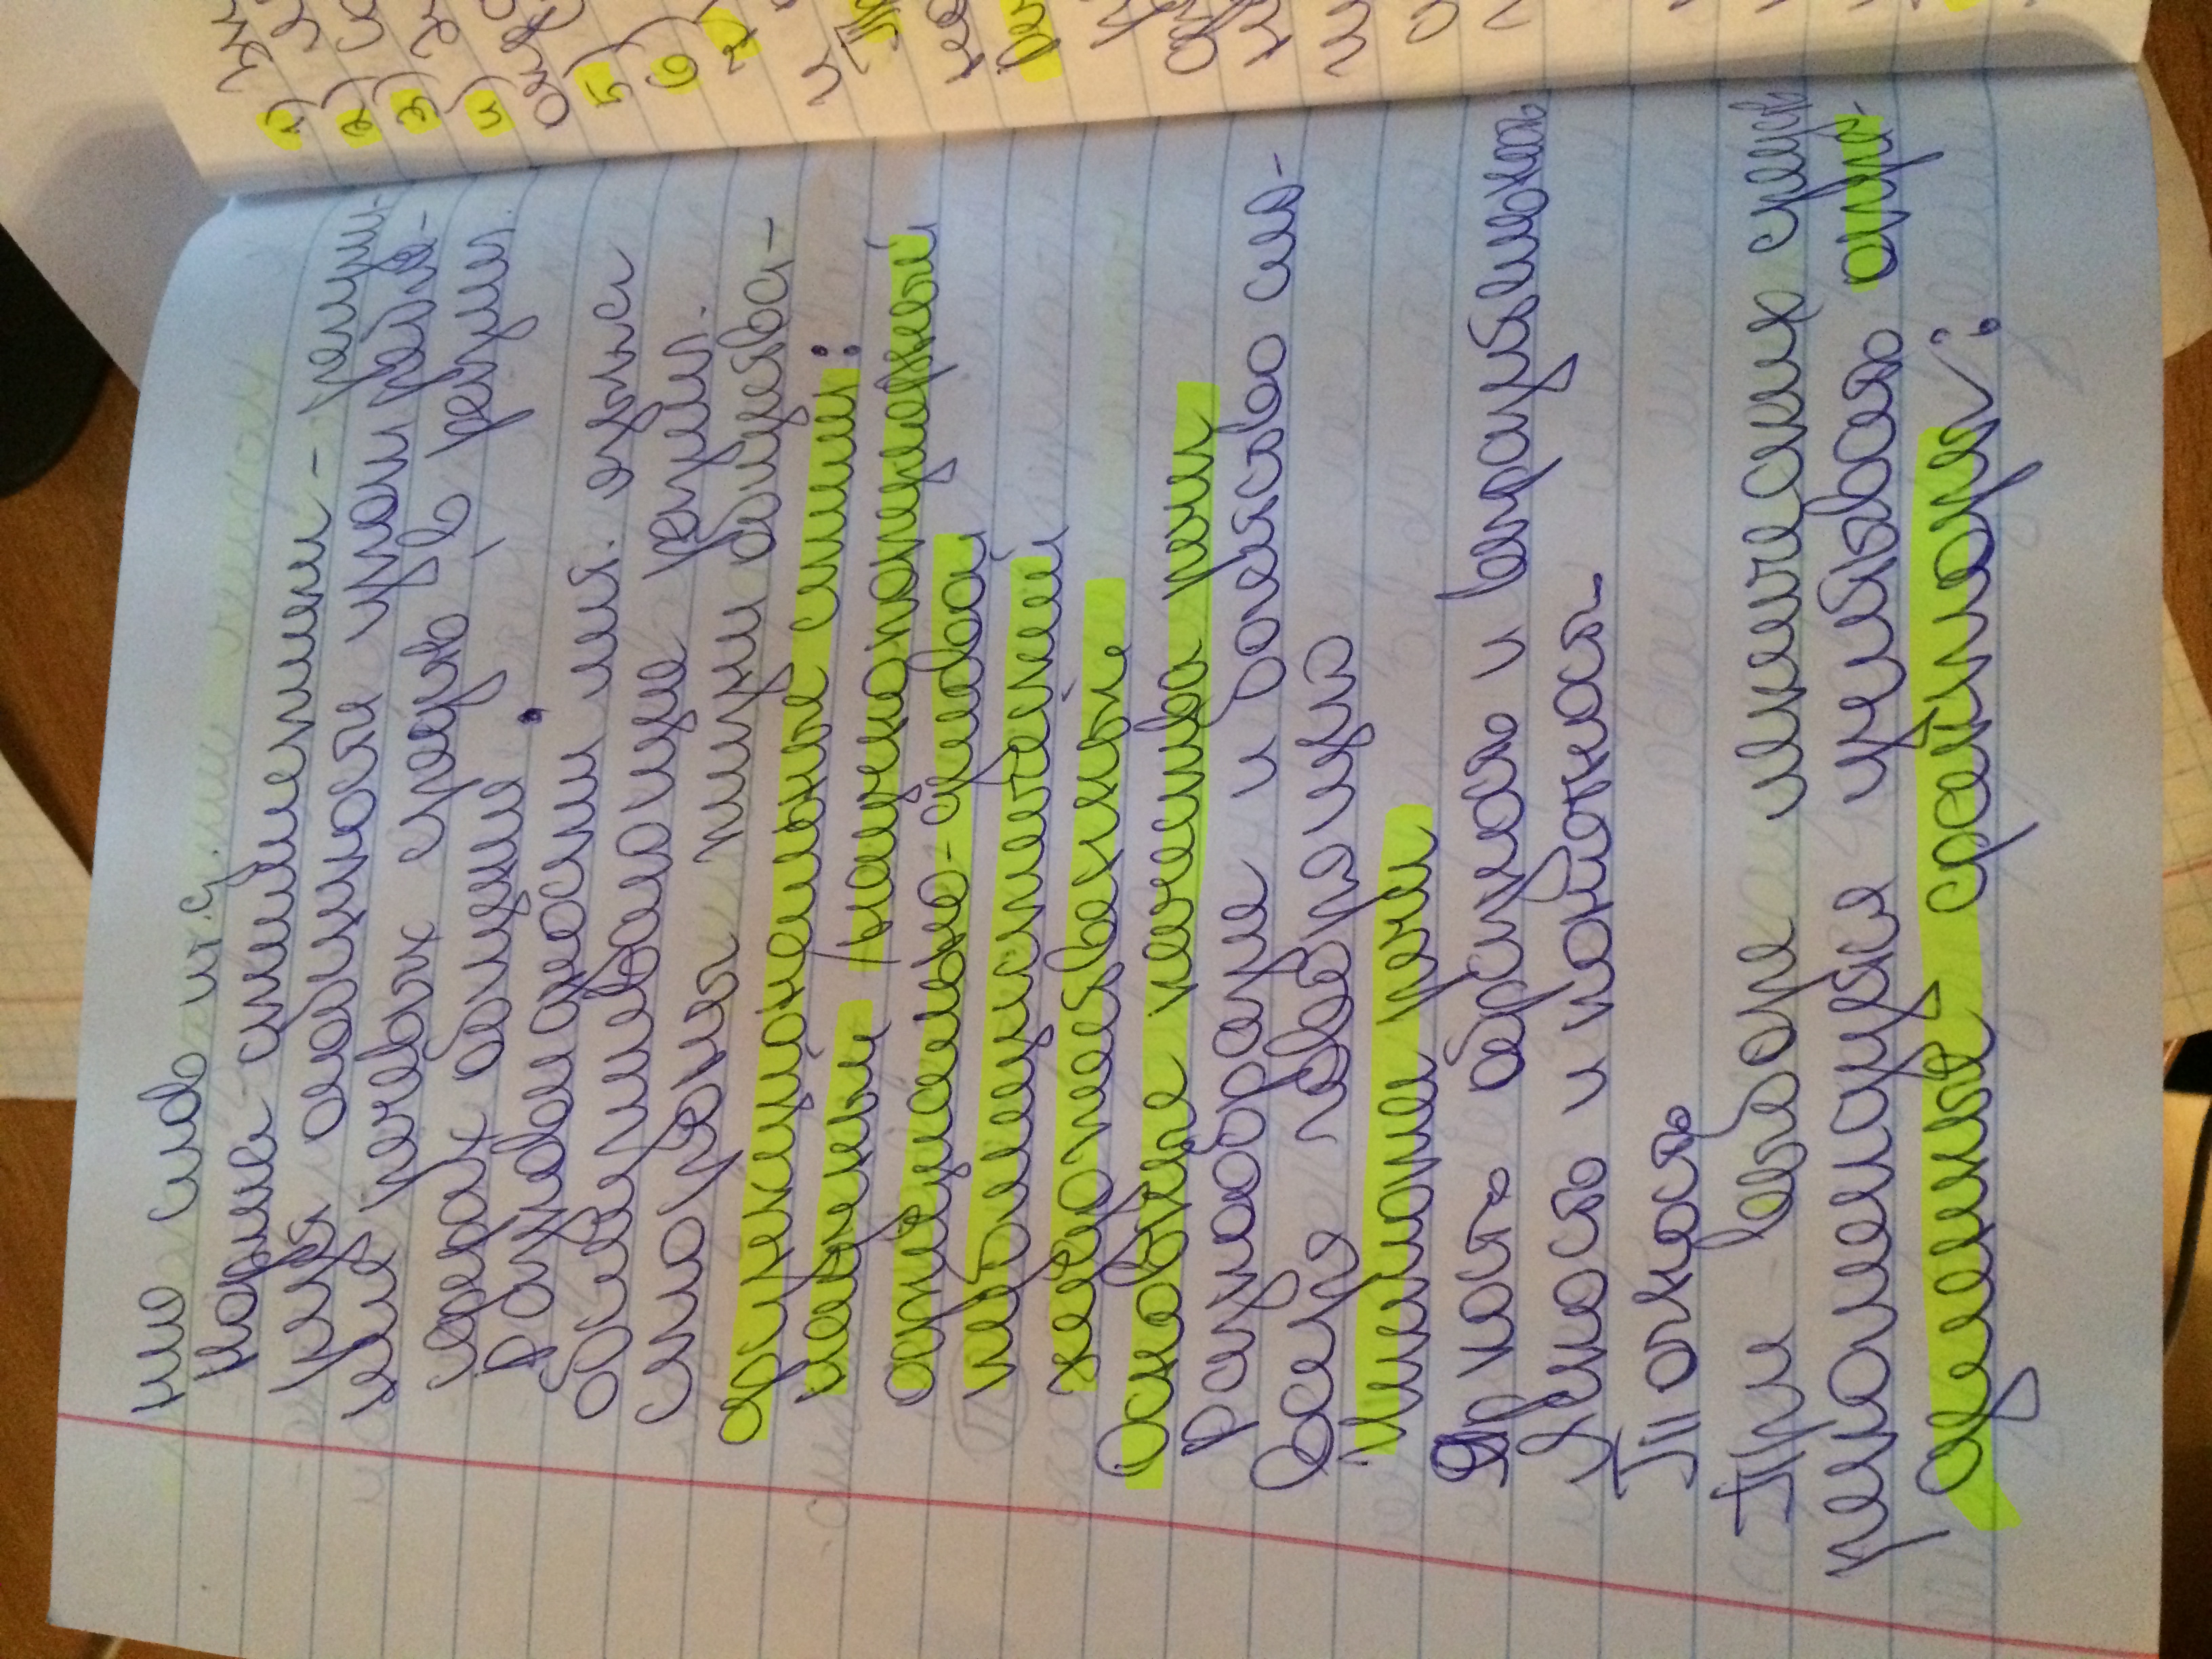 ние слов и т.д.
Норма стилистики - регули-
руют особенности употребле-
ния речевых средств в различ.
сферах общения.
Разновидности лит. языка
обслуживающие различ.
стороны жизни общества-
функциональные стили:
научный /научнопопулярный
официально-деловой
публицистический
художественный
Основные качества речи
Разнообразие и богатство сло-
варя говорящего
Чистота речи
Яркость образность и выразительность
Ясность и понятность
Точность
При выборе лексических средств
рекомендуется учитывать опре-
деленные факторы:
1)
2)
3)
4)
5)
6)
7)
и